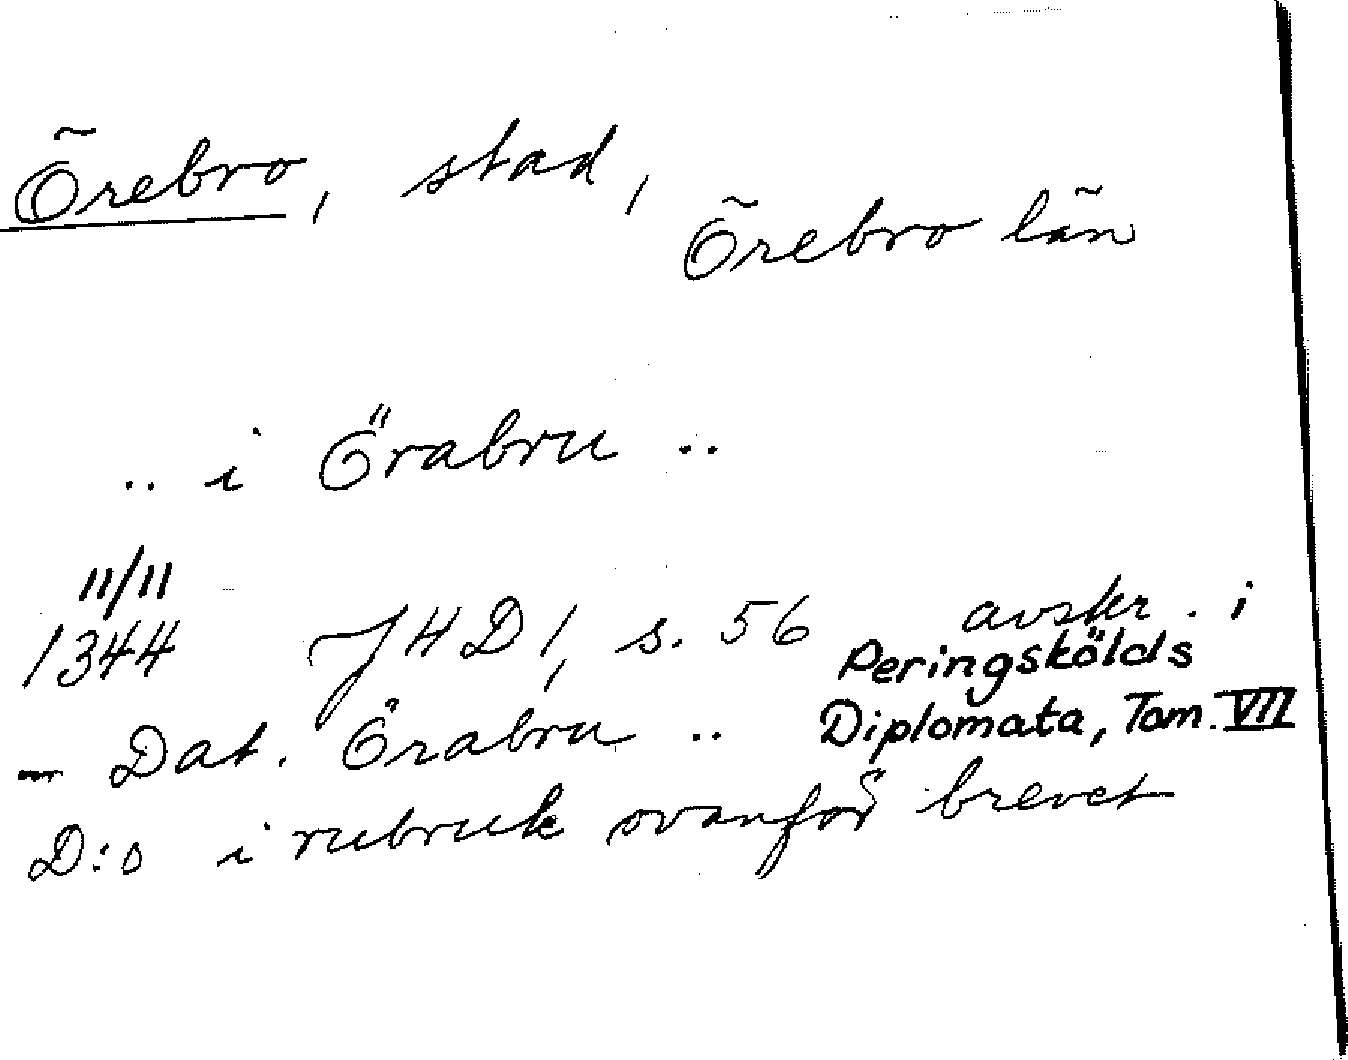 Örebro, stad,
Örebro län
.. i Örabru ..
11/11
1344 JHD 1, s. 56 avskr. i
Peringskölds
Diplomata, Tom. VII
— Dat. Örabru ..
D:o i rubruk ovanför brevet